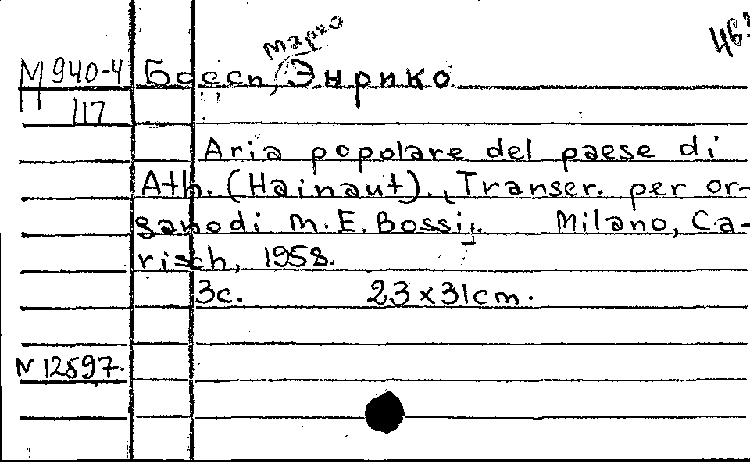 Марко
М 940-4 Босси, Энрико
117
Aria popolare del paese di
Ath. (Hainaut). Transcr. per or-
gano di M. E. Bossi. Milano, Ca-
risch, 1958.
3c. 23 x 31 cm.
N 12597.